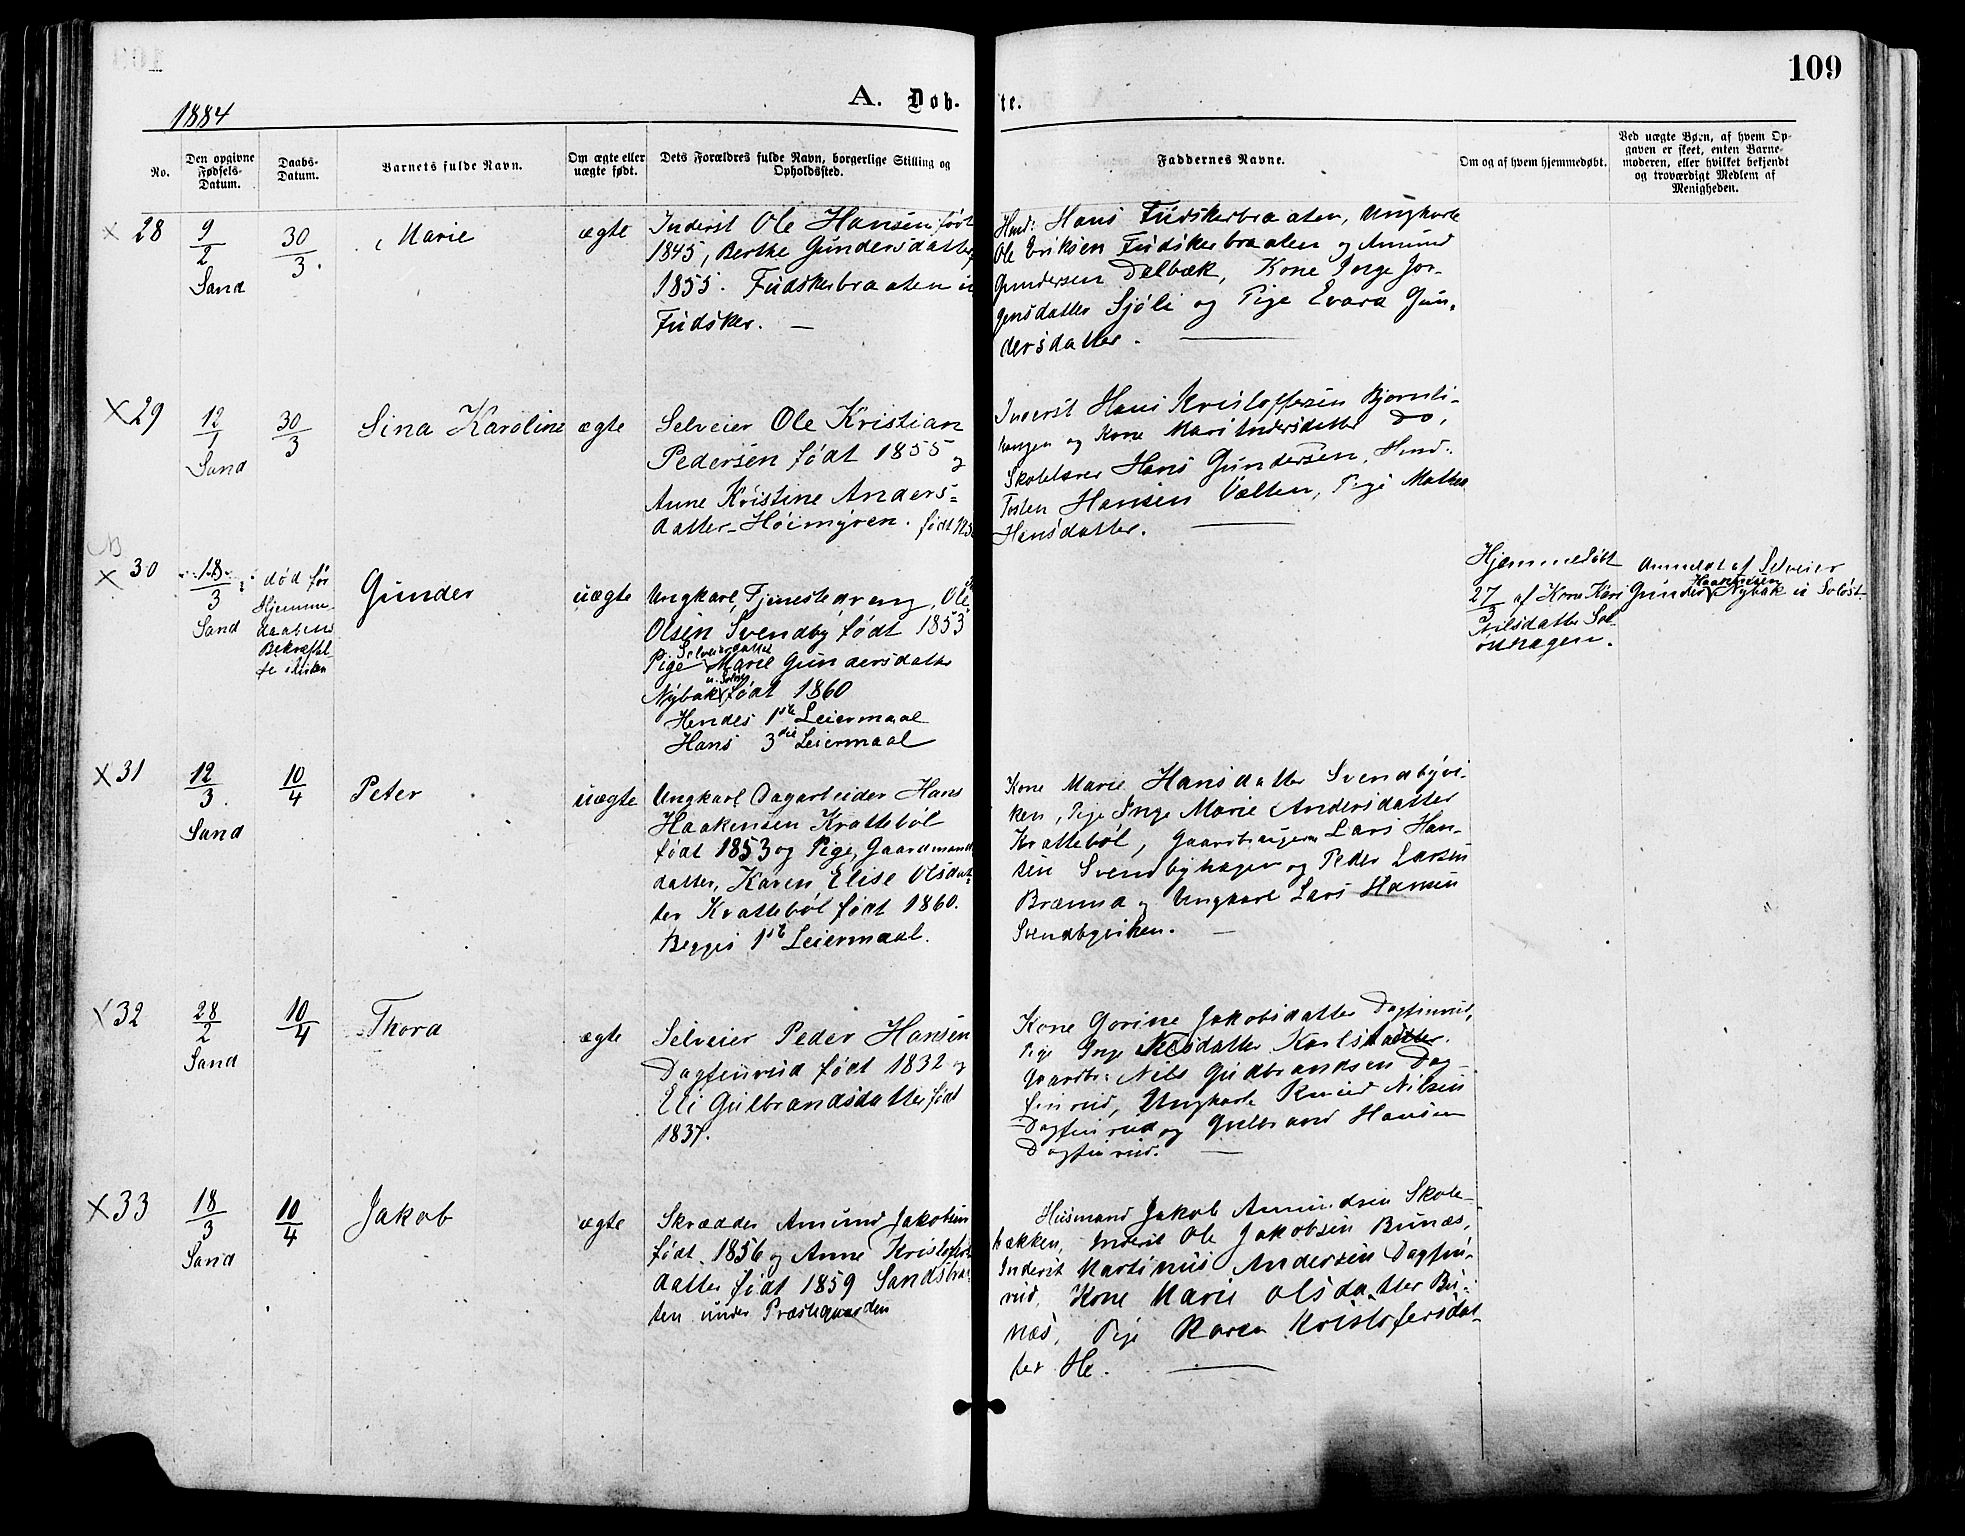 109
A. Døb-
te.
1884
No.
Den opgivne Fødsels-Datum.
Daabs-Datum.
Barnets fulde Navn.
Om ægte eller uægte født.
Dets Forældres fulde Navn, borgerlige Stilling og Opholdssted.
Faddernes Navne.
Om og af hvem hjemmedøbt.
Ved uægte Børn, af hvem Op-
gaven er skeet, enten Barne-
moderen, eller hvilket bekjendt
og troværdigt Medlem af
Menigheden.
× 28
9/2 Sand
30/3.
Marie
ægte
Inderst Ole Hansen født
1845, Berthe Gundersdatter
1855. Fudskerbraaten u
Fudsker. —
Husd: Hans Fudskerbraaten, Ungkarle
Ole Eriksen Fudskerbraaten og Amund
Gundersen Dælbæk, Kone Inge Jør-
gensdatter Sjøli og Pige Evara Gun-
dersdatter.
× 29
12/1 Sand
30/3
Sina Karoline
ægte
Selveier Ole Kristian
Pedersen født 1855 og
Anne Kristine Anders=
datter Høimyren. født
Inderst Hans Kristoffersen Bjørnli-
haugen og Kone Mari do,
Skolelærer Hans Gundersen, Husd:
Hansen Vælten, Pige Mathea
Hansdatter.
× 30
18/3 Sand
død før
Hjemme-
daabens
Bekræftel-
se i Kirken
Gunder
uægte
Ungkarl, Tjenestedreng, Ole
Olsen Svendby født 1853
Selveierdatter
Pige Marie Gundersdatter
Nybak født 1860
Hendes 1ste Leiermaal
Hans 3die Leiermaal
Hjemmedøbt
27/3 af Kone Kari
Nilsdatter Sol-
østhagen.
Anmeldt af Selveier
Gunder Haakensen Nybak u Soløst.
× 31
12/3. Sand
10/4
Peter
uægte
Ungkarl Dagarbeider Hans
Haakensen Kratteböl
født 1853 og Pige, Gaardmands
datter, Karen Elise Olsdat-
ter Kratteböl født 1860.
Begges 1ste Leiermaal.
Kone Marie Hansdatter Svendbyvi-
ken, Pige Inge Marie Andersdatter
Kratteböl, Gaardbrugere Lars Han-
sen Svendbyhagen og Peder Larsen
Brænna og Ungkarl Lars Hansen
Svendbyviken. —
× 32
28/2 Sand
10/4
Thora
ægte
Selveier Peder Hansen
Dagfinrud født 1832 og
Eli Gulbrandsdatter født
1837.
Kone Gorine Jakobsdatter Dagfinrud,
Pige Inge Nilsdatter Karlstad
Gaardbr: Nils Gudbrandsen Dag-
finrud, Ungkarle Knud Nilsen
Dagfinrud og Gulbrand Hansen
Dagfinrud. —
× 33
18/3 Sand
10/4
Jakob
ægte
Skrædder Amund Jakobsen
født 1856 og Anne Kristofers
datter født 1859 Sandsbraa-
ten under Præstegaarden
Husmand Jakob Amundsen Skole-
bækken, Inderst Ole Jakobsen Bunæs,
Inderst Martinus Andersen Dagfin-
rud, Kone Marie Olsdatter Bu-
næs, Pige Karen Kristofersdat-
ter He. —